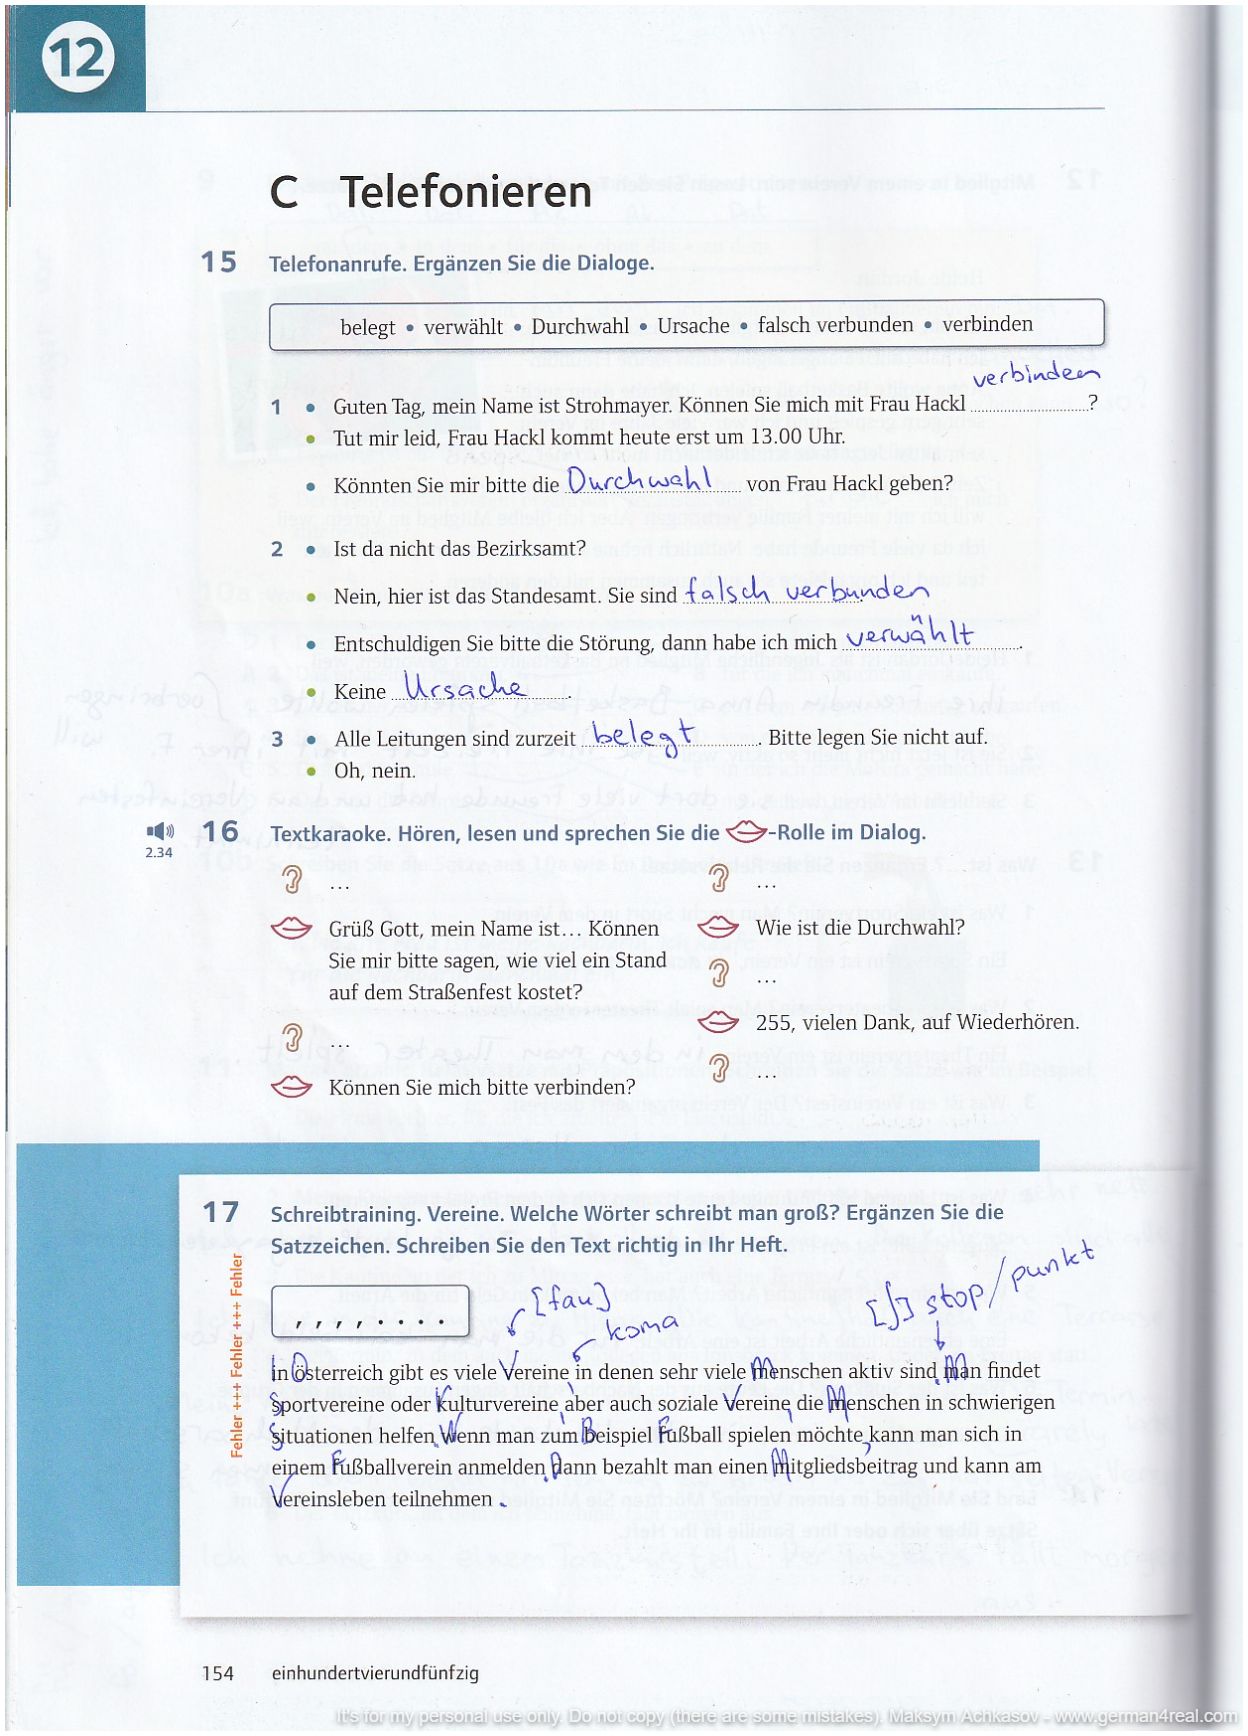 12
C Telefonieren
15 Telefonanrufe. Ergänzen Sie die Dialoge.
belegt • verwählt • Durchwahl • Ursache • falsch verbunden • verbinden
verbinden
1 • Guten Tag, mein Name ist Strohmayer. Können Sie mich mit Frau Hackl ........................?
• Tut mir leid, Frau Hackl kommt heute erst um 13.00 Uhr.
• Könnten Sie mir bitte die Durchwahl von Frau Hackl geben?
2 • Ist da nicht das Bezirksamt?
• Nein, hier ist das Standesamt. Sie sind falsch verbunden
• Entschuldigen Sie bitte die Störung, dann habe ich mich verwählt.
• Keine Ursache.
3 • Alle Leitungen sind zurzeit belegt. Bitte legen Sie nicht auf.
• Oh, nein.
2.34
16 Textkaraoke. Hören, lesen und sprechen Sie die -Rolle im Dialog.
...
Grüß Gott, mein Name ist... Können
Sie mir bitte sagen, wie viel ein Stand
auf dem Straßenfest kostet?
...
Können Sie mich bitte verbinden?
...
Wie ist die Durchwahl?
...
255, vielen Dank, auf Wiederhören.
...
17 Schreibtraining. Vereine. Welche Wörter schreibt man groß? Ergänzen Sie die
Satzzeichen. Schreiben Sie den Text richtig in Ihr Heft.
Fehler +++ Fehler +++ Fehler
, , , , . . . .
[fau]
koma
[ʃ] stop/punkt
In Österreich gibt es viele Vereine, in denen sehr viele Menschen aktiv sind. Man findet
Sportvereine oder Kulturvereine, aber auch soziale Vereine, die Menschen in schwierigen
Situationen helfen. Wenn man zum Beispiel Fußball spielen möchte, kann man sich in
einem Fußballverein anmelden. Dann bezahlt man einen Mitgliedsbeitrag und kann am
Vereinsleben teilnehmen.
154 einhundertvierundfünfzig
It's for my personal use only. Do not copy (there are some mistakes). Maksym Achkasov - www.german4real.com